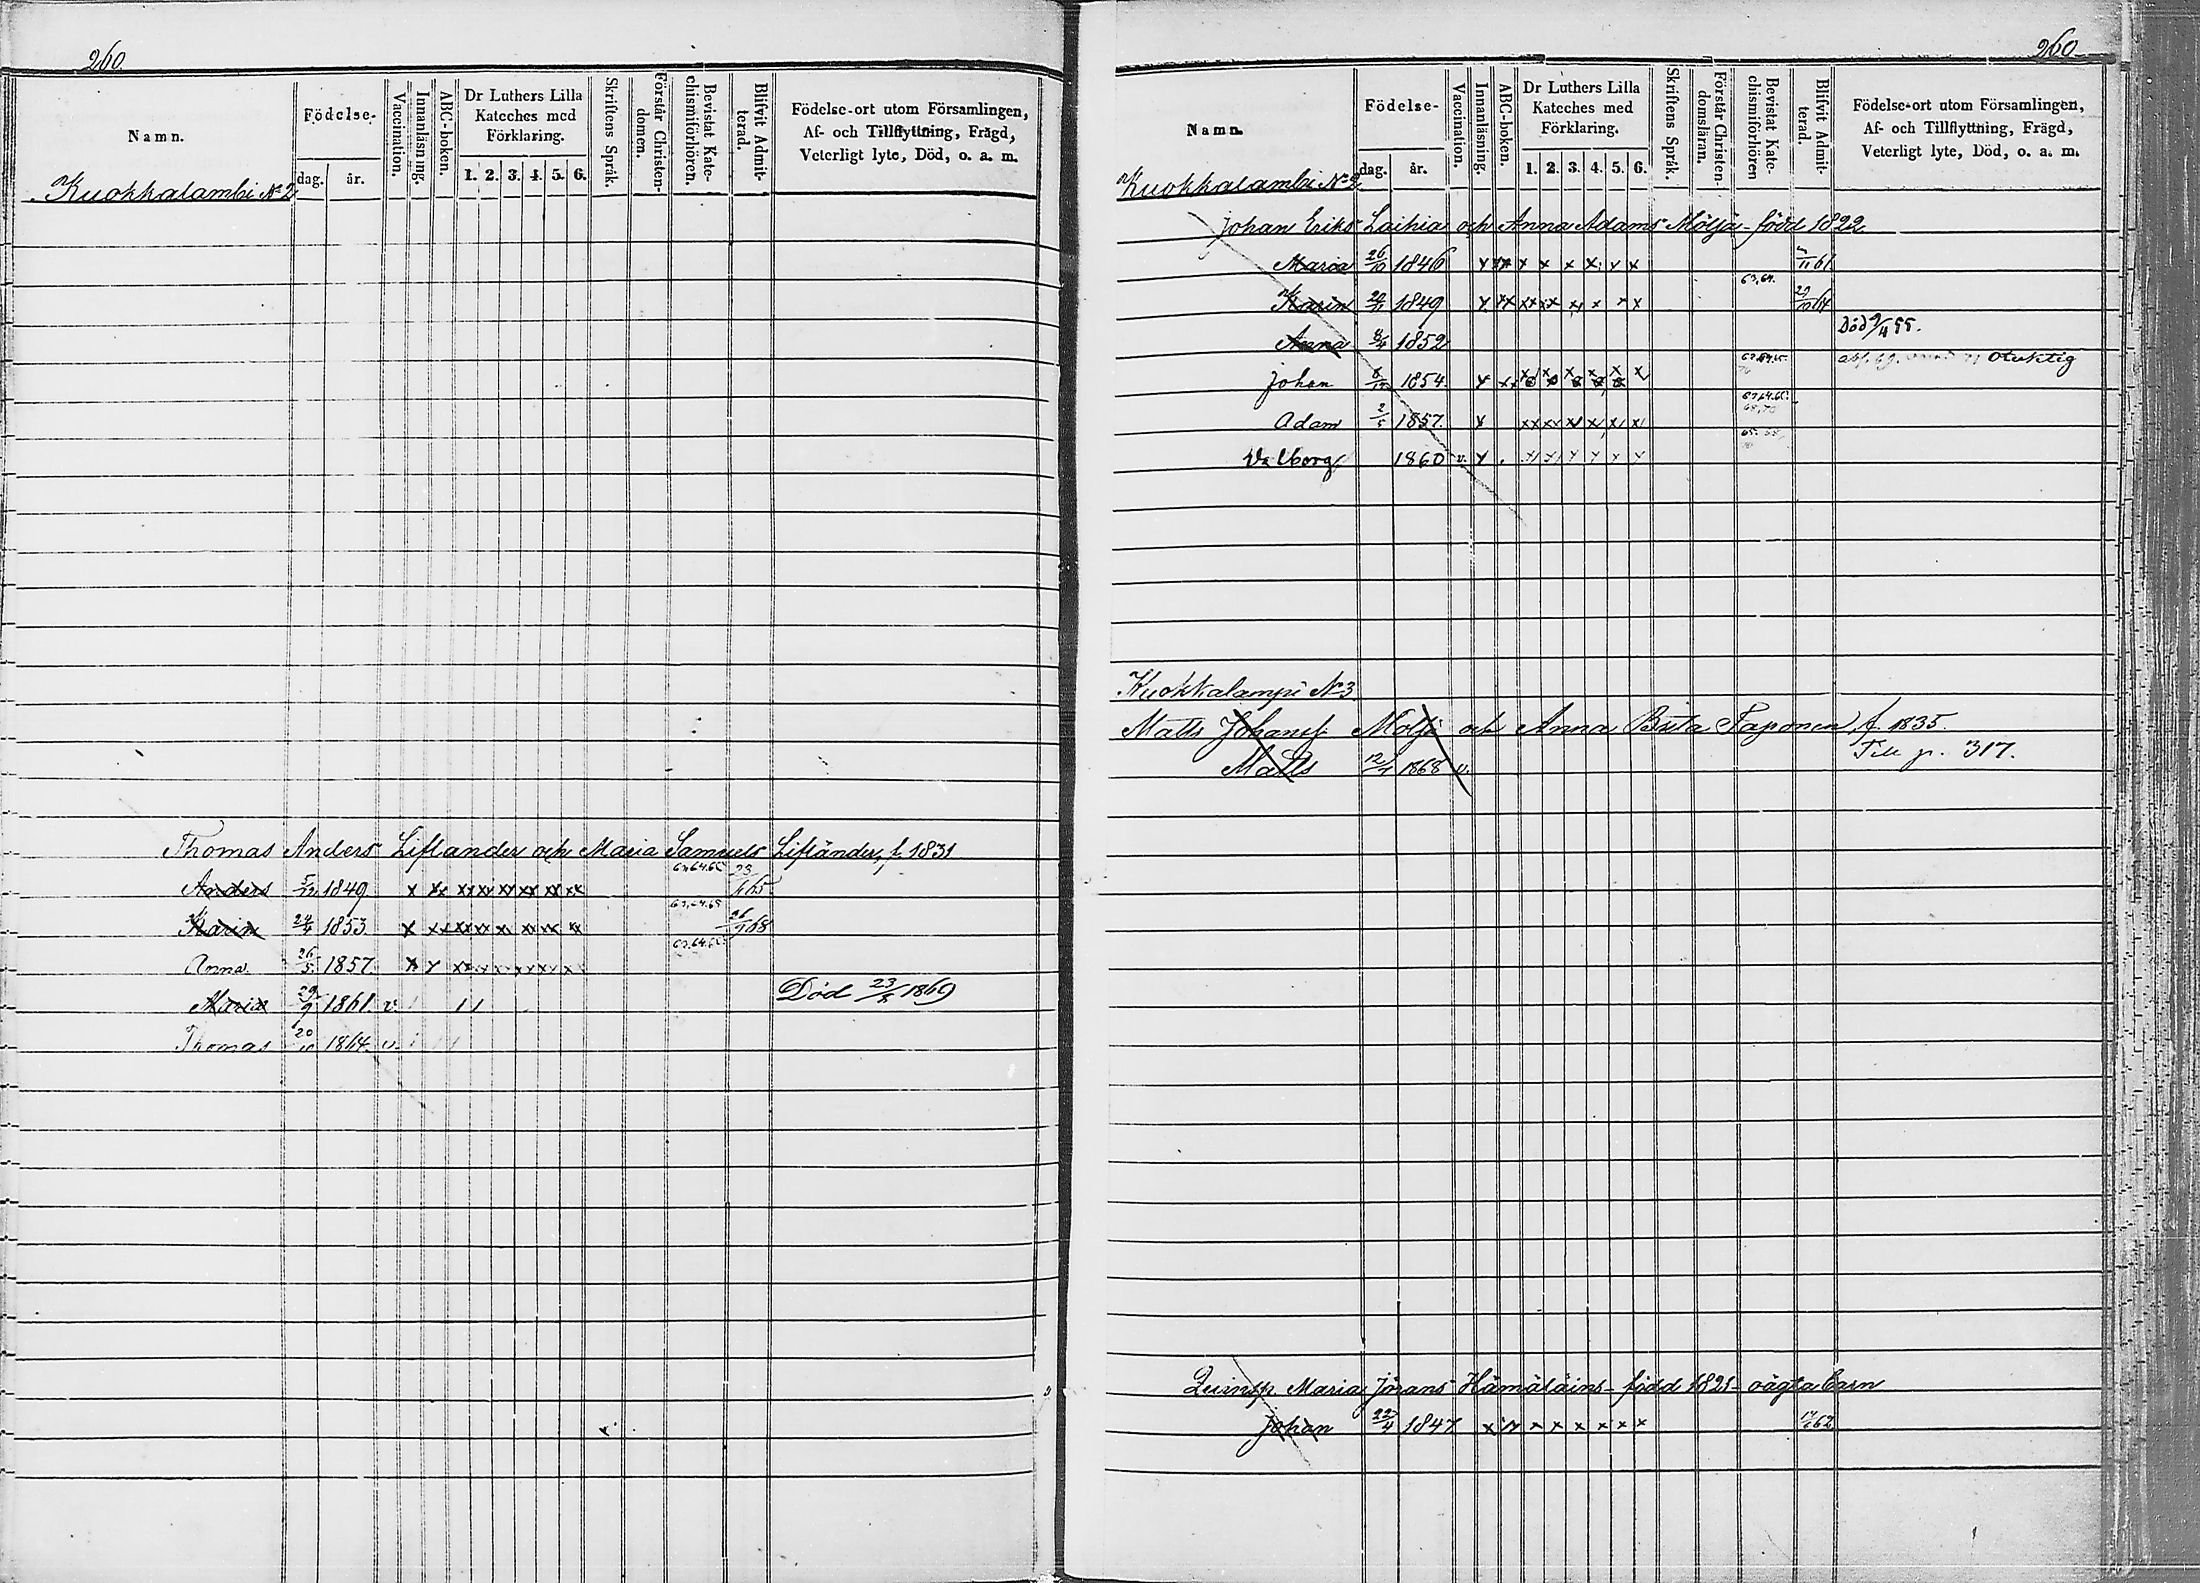 260.
Namn.
Födelse-
dag. år.
Vaccination.
Innanläsning.
ABC-boken.
Dr Luthers Lilla Kateches med Förklaring.
1. 2. 3. 4. 5. 6.
Skriftens Språk.
Förstår Christendomen.
Bevistat Katechismiförhören.
Blifvit Admitterad.
Födelse-ort utom Församlingen,
Af- och Tillflyttning, Frägd,
Veterligt lyte, Död, o. a. m.
Kuokkalambi No 2
Thomas Anders Liflander och Maria Samuels Lifländer, f. 1831
Anders 5/12 1849 x xx xx xx xx xx xx 63,64,65 23/65
Karin 24/4 1853 x xx xx xx xx xx xx 26/68
Anna 26/5 1857 x 63,64,65
Maria 29/9 1861. v. Död 23/5 1869
Thomas 20/10 1864. v.
260
Namn.
Födelse-
dag. år.
Vaccination.
Innanläsning.
ABC-boken.
Dr Luthers Lilla Kateches med Förklaring.
1. 2. 3. 4. 5. 6.
Skriftens Språk.
Förstår Christendomsläran.
Bevistat Katechismiförhören
Blifvit Admitterad.
Födelse-ort utom Församlingen,
Af- och Tillflyttning, Frägd,
Veterligt lyte, Död, o. a. m.
Kuokkalambi No 2
Johan Eriks Laihia och Anna Adams Möljä - född 1822
Maria 26/10 1846 x xx x x x x x x 61
Karin 1849 x xx xx xx x x x x 63,64. 29/10 64
Anna 8/4 1852 Död 9/4 55.
Johan 1854. x xx x x x x x x otuktig
Adam 2/5 1857. x xx xx x x x x
Valborg 1860 v. x
Kuokkalampi No 3
Matts Johansf. Moljä och Anna Brita Taponen, f. 1835.
Matts 12/1 1868 v. Till p. 317.
Quinsp. Maria Jörans Hämäläins - född 1821 - oägta barn
Johan 22/4 1847 x x x x x x x x 62